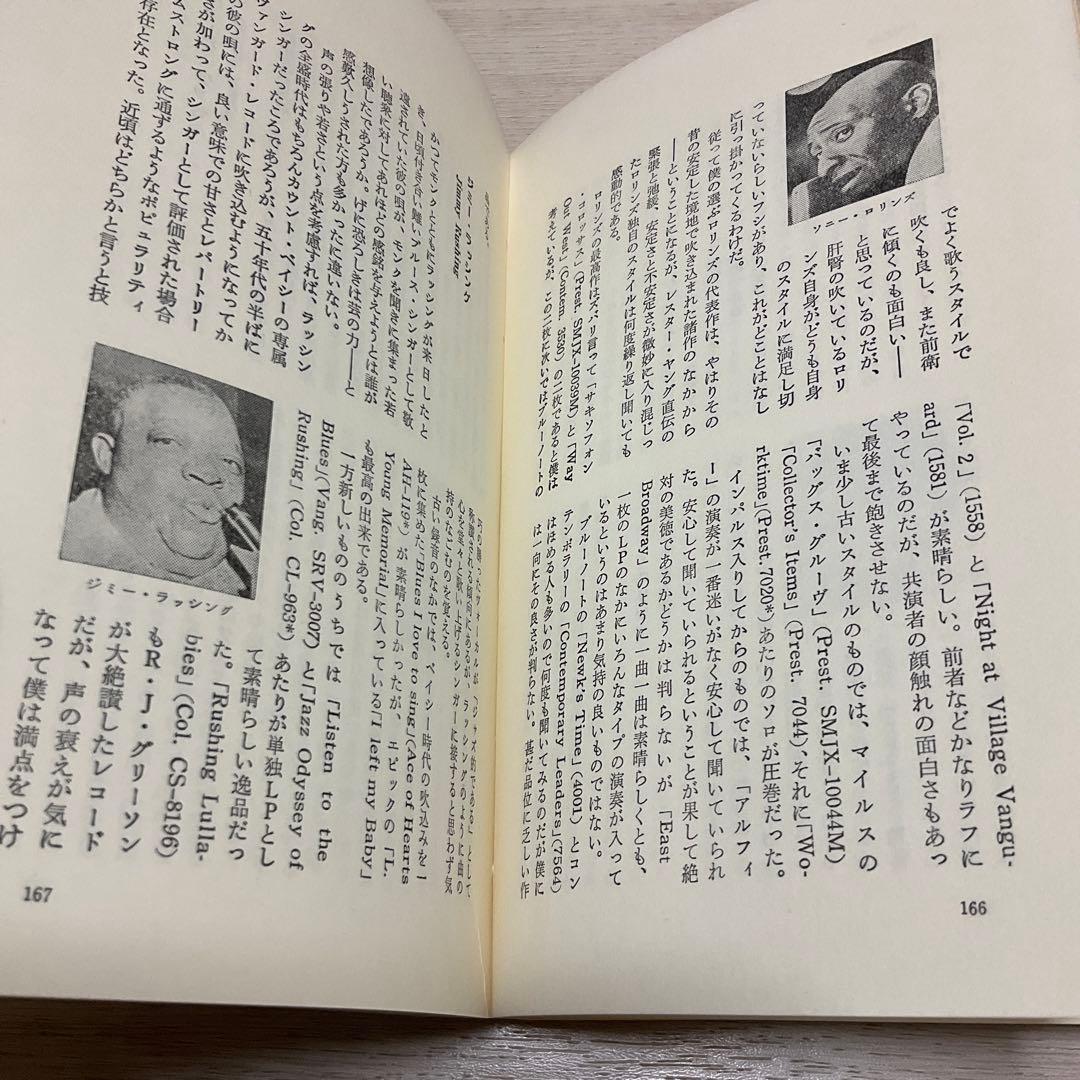 ソニー・ロリンズ
でよく歌うスタイルで
吹くも良し、また前衛
に傾くのも面白い――
と思っているのだが、
肝腎の吹いているロリ
ンズ自身がどうも自身
のスタイルに満足し切
っていないらしいフシがあり、これがどことはなし
に引っ掛かってくるわけだ。
従って僕の選ぶロリンズの代表作は、やはりその
昔の安定した境地で吹き込まれた諸作のなかから
――ということになるが、レスター・ヤング直伝の
緊張と弛緩、安定さと不安定さが微妙に入り混じっ
たロリンズ独自のスタイルは何度繰り返し聞いても
感動的である。
ロリンズの最高作はズバリ言って「サキソフォン
・コロッサス」(Prest. SMJX-10039M)と「Way
Out West」(Contem. 3530)の二枚であると僕は
考えているが、この二枚に次いではブルーノートの
「Vol. 2」(1558)と「Night at Village Vangu-
ard」(1581)が素晴らしい。前者などかなりラフに
やっているのだが、共演者の顔触れの面白さもあっ
て最後まで飽きさせない。
いま少し古いスタイルのものでは、マイルスの
「バッグス・グルーヴ」(Prest. SMJX-10044M)
「Collector's Items」(Prest. 7044)、それに「Wo-
rktime」(Prest. 7020*)あたりのソロが圧巻だった。
インパルス入りしてからのものでは、「アルフィ
ー」の演奏が一番迷いがなく安心して聞いていられ
た。安心して聞いていられるということが果して絶
対の美徳であるかどうかは判らないが、「East
Broadway」のように一曲一曲は素晴らしくとも、
一枚のLPのなかにいろんなタイプの演奏が入って
いるというのはあまり気持の良いものではない。
ブルーノートの「Newk's Time」(4001)とコン
テンポラリーの「Contemporary Leaders」(7564)
はほめる人も多いので何度も聞いてみるのだが僕に
は一向にその良さが判らない。甚だ品位に乏しい作
166
ジミー・ラッシング
Jimmy Rushing
かつてモンクとともにラッシングが来日したと
き、日頃付き合い難いブルース・シンガーとして敬
遠されていた彼の唄が、モンクを聞きに集まった若
い聴衆に対してあれほどの感銘を与えようとは誰が
想像したであろうか。げに恐ろしきは芸の力――と
感歎久しうされた方も多かったに違いない。
声の張りや若さという点を考慮すれば、ラッシン
グの全盛時代はもちろんカウント・ベイシーの専属
シンガーだったころであろうが、五十年代の半ばに
ヴァンガード・レコードに吹き込むようになってか
の彼の唄には、良い意味での甘さとレパートリー
さが加わって、シンガーとして評価された場合
ムストロングに通ずるようなポピュラリティ
存在となった。近頃はどちらかと言うと技
ジミー・ラッシング
巧の勝ったヴォーカルが「ジャズ的である」として
称讃される傾向にあるが、ラッシングのように曲の
心を堂々と歌い上げるシンガーに接すると思わず気
持のなごむのを覚える。
古い録音のなかでは、ベイシー時代の吹込みを一
枚に集めた「Blues I love to sing」(Ace of Hearts
AH-119*)が素晴らしかったが、エピックの「L.
Young Memorial」に入っている「I left my Baby」
も最高の出来である。
一方新しいもののうちでは「Listen to the
Blues」(Vang. SRV-3007)と「Jazz Odyssey of
Rushing」(Col. CL-963*)あたりが単独LPとし
て素晴らしい逸品だっ
た。「Rushing Lulla-
bies」(Col. CS-8196)
もR・J・グリーソン
が大絶讃したレコード
だが、声の衰えが気に
なって僕は満点をつけ
167